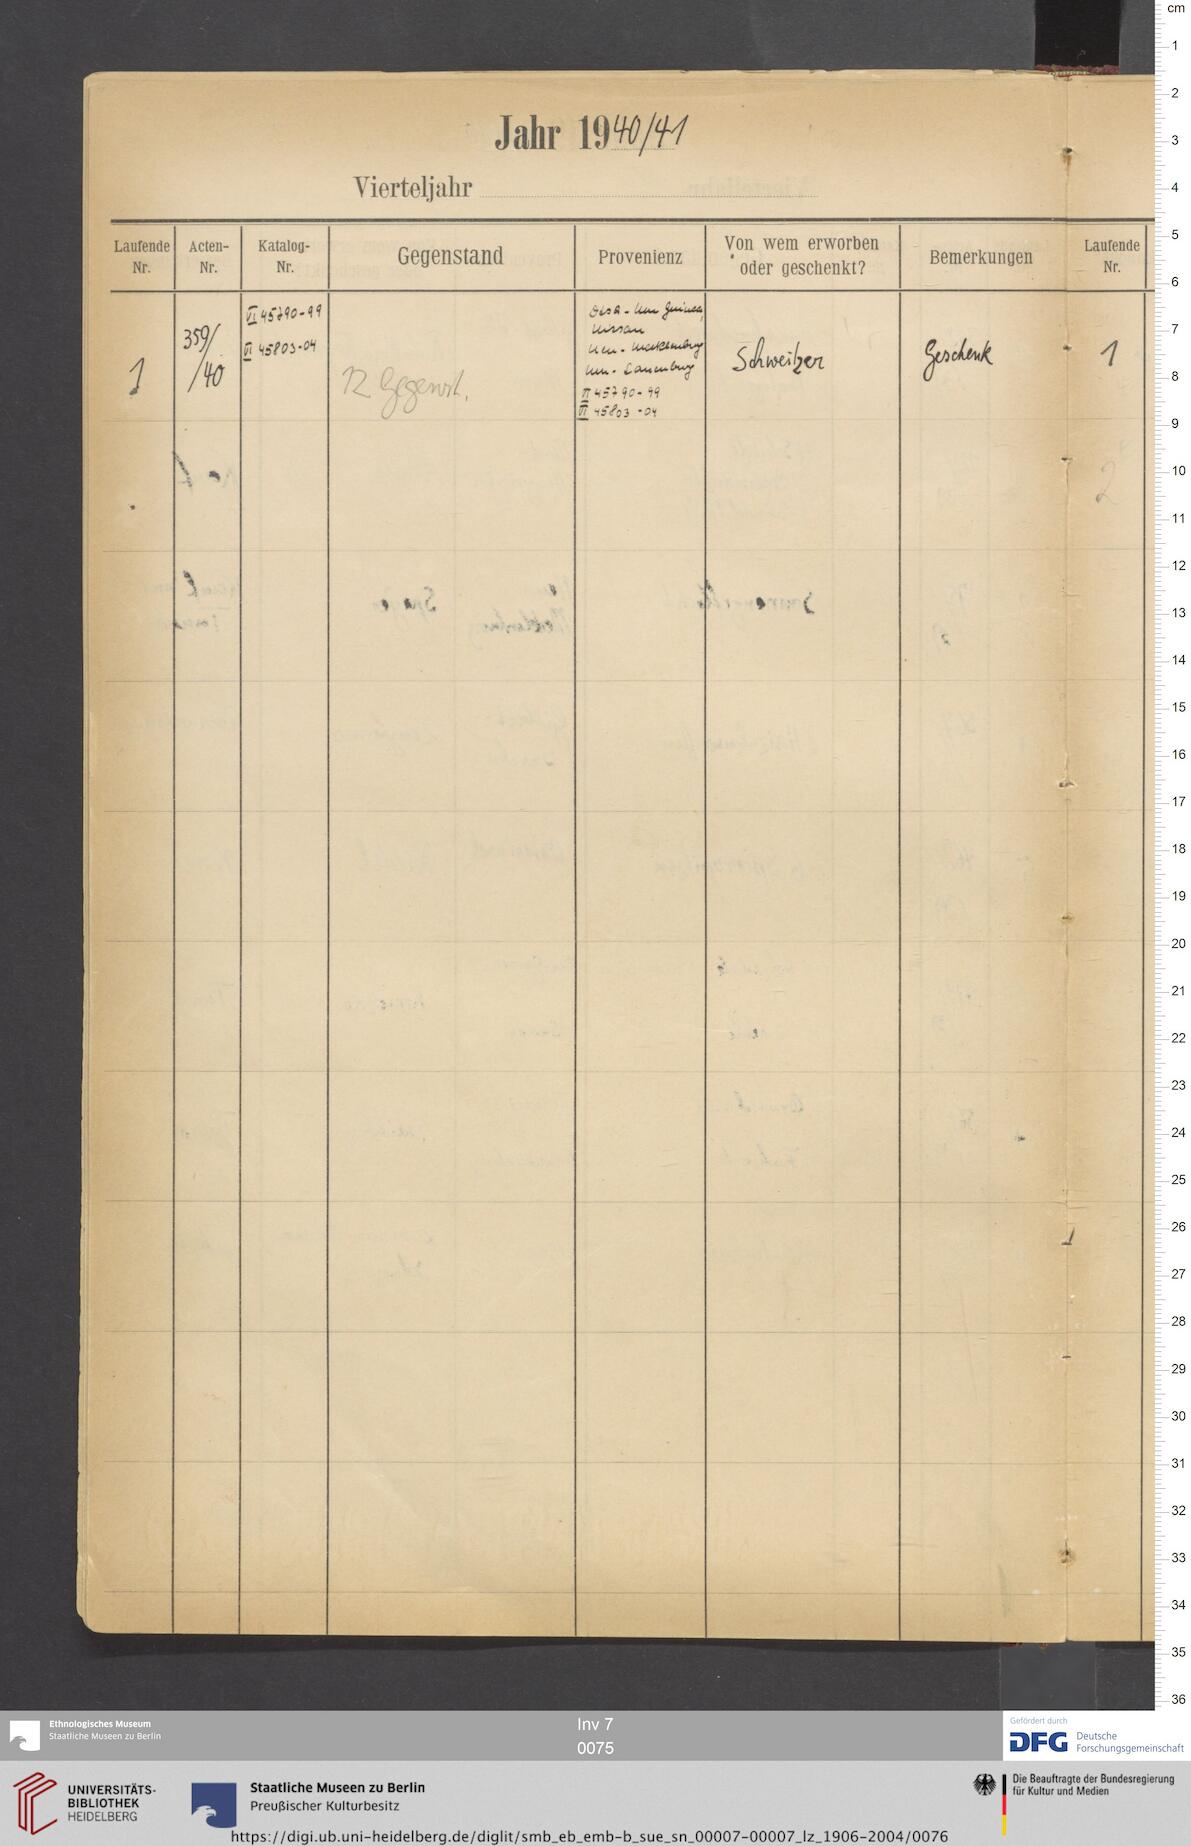 Jahr 1940/41
Vierteljahr
Laufende Nr.
Acten-Nr.
Katalog-Nr.
Gegenstand
Provenienz
Von wem erworben oder geschenkt?
Bemerkungen
Laufende Nr.
1
359/
/40
VI 45790-99
VI 45803-04
12 Gegenst.
Neu Guinea,
Nissan
Neu-Mecklenburg
Neu-Lauenburg
VI 45790-99
VI 45803-04
Schweitzer
Geschenk
1
2
cm
1
2
3
4
5
6
7
8
9
10
11
12
13
14
15
16
17
18
19
20
21
22
23
24
25
26
27
28
29
30
31
32
33
34
35
36
Ethnologisches Museum
Staatliche Museen zu Berlin
Inv 7
0075
Gefördert durch
DFG Deutsche
Forschungsgemeinschaft
UNIVERSITÄTS-
BIBLIOTHEK
HEIDELBERG
Staatliche Museen zu Berlin
Preußischer Kulturbesitz
Die Beauftragte der Bundesregierung
für Kultur und Medien
https://digi.ub.uni-heidelberg.de/diglit/smb_eb_emb-b_sue_sn_00007-00007_lz_1906-2004/0076